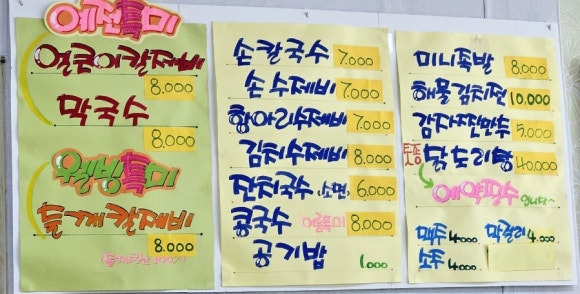 예전특미
얼큰이칼제비
8.000
막국수
8.000
웰빙특미
들깨칼제비
8.000
손칼국수 7.000
손수제비 7.000
항아리수제비 7.000
김치수제비 8.000
잔치국수(소면) 6.000
콩국수 여름특미 8.000
공기밥 1000
미니족발 8.000
해물김치전 10.000
감자찐만두 5.000
토종 닭도리탕 40.000
예약필수 입니다~
맥주 4.000 막걸리 4.000
소주 4.000